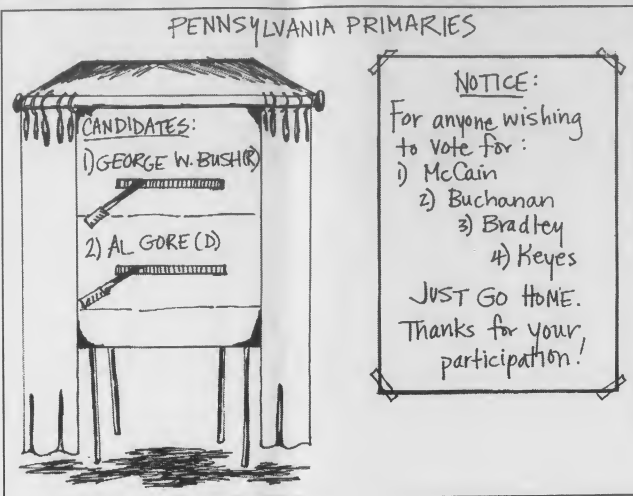 PENNSYLVANIA PRIMARIES
CANDIDATES:
1) GEORGE W. BUSH (R)
2) AL GORE (D)
NOTICE:
For anyone wishing
to vote for:
1) McCain
2) Buchanan
3) Bradley
4) Keyes
JUST GO HOME.
Thanks for your
participation!